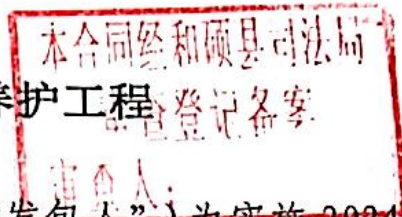 本合同经和硕县司法局
养护工程
审查登记备案
审查人：
发包人”）为实施 2024